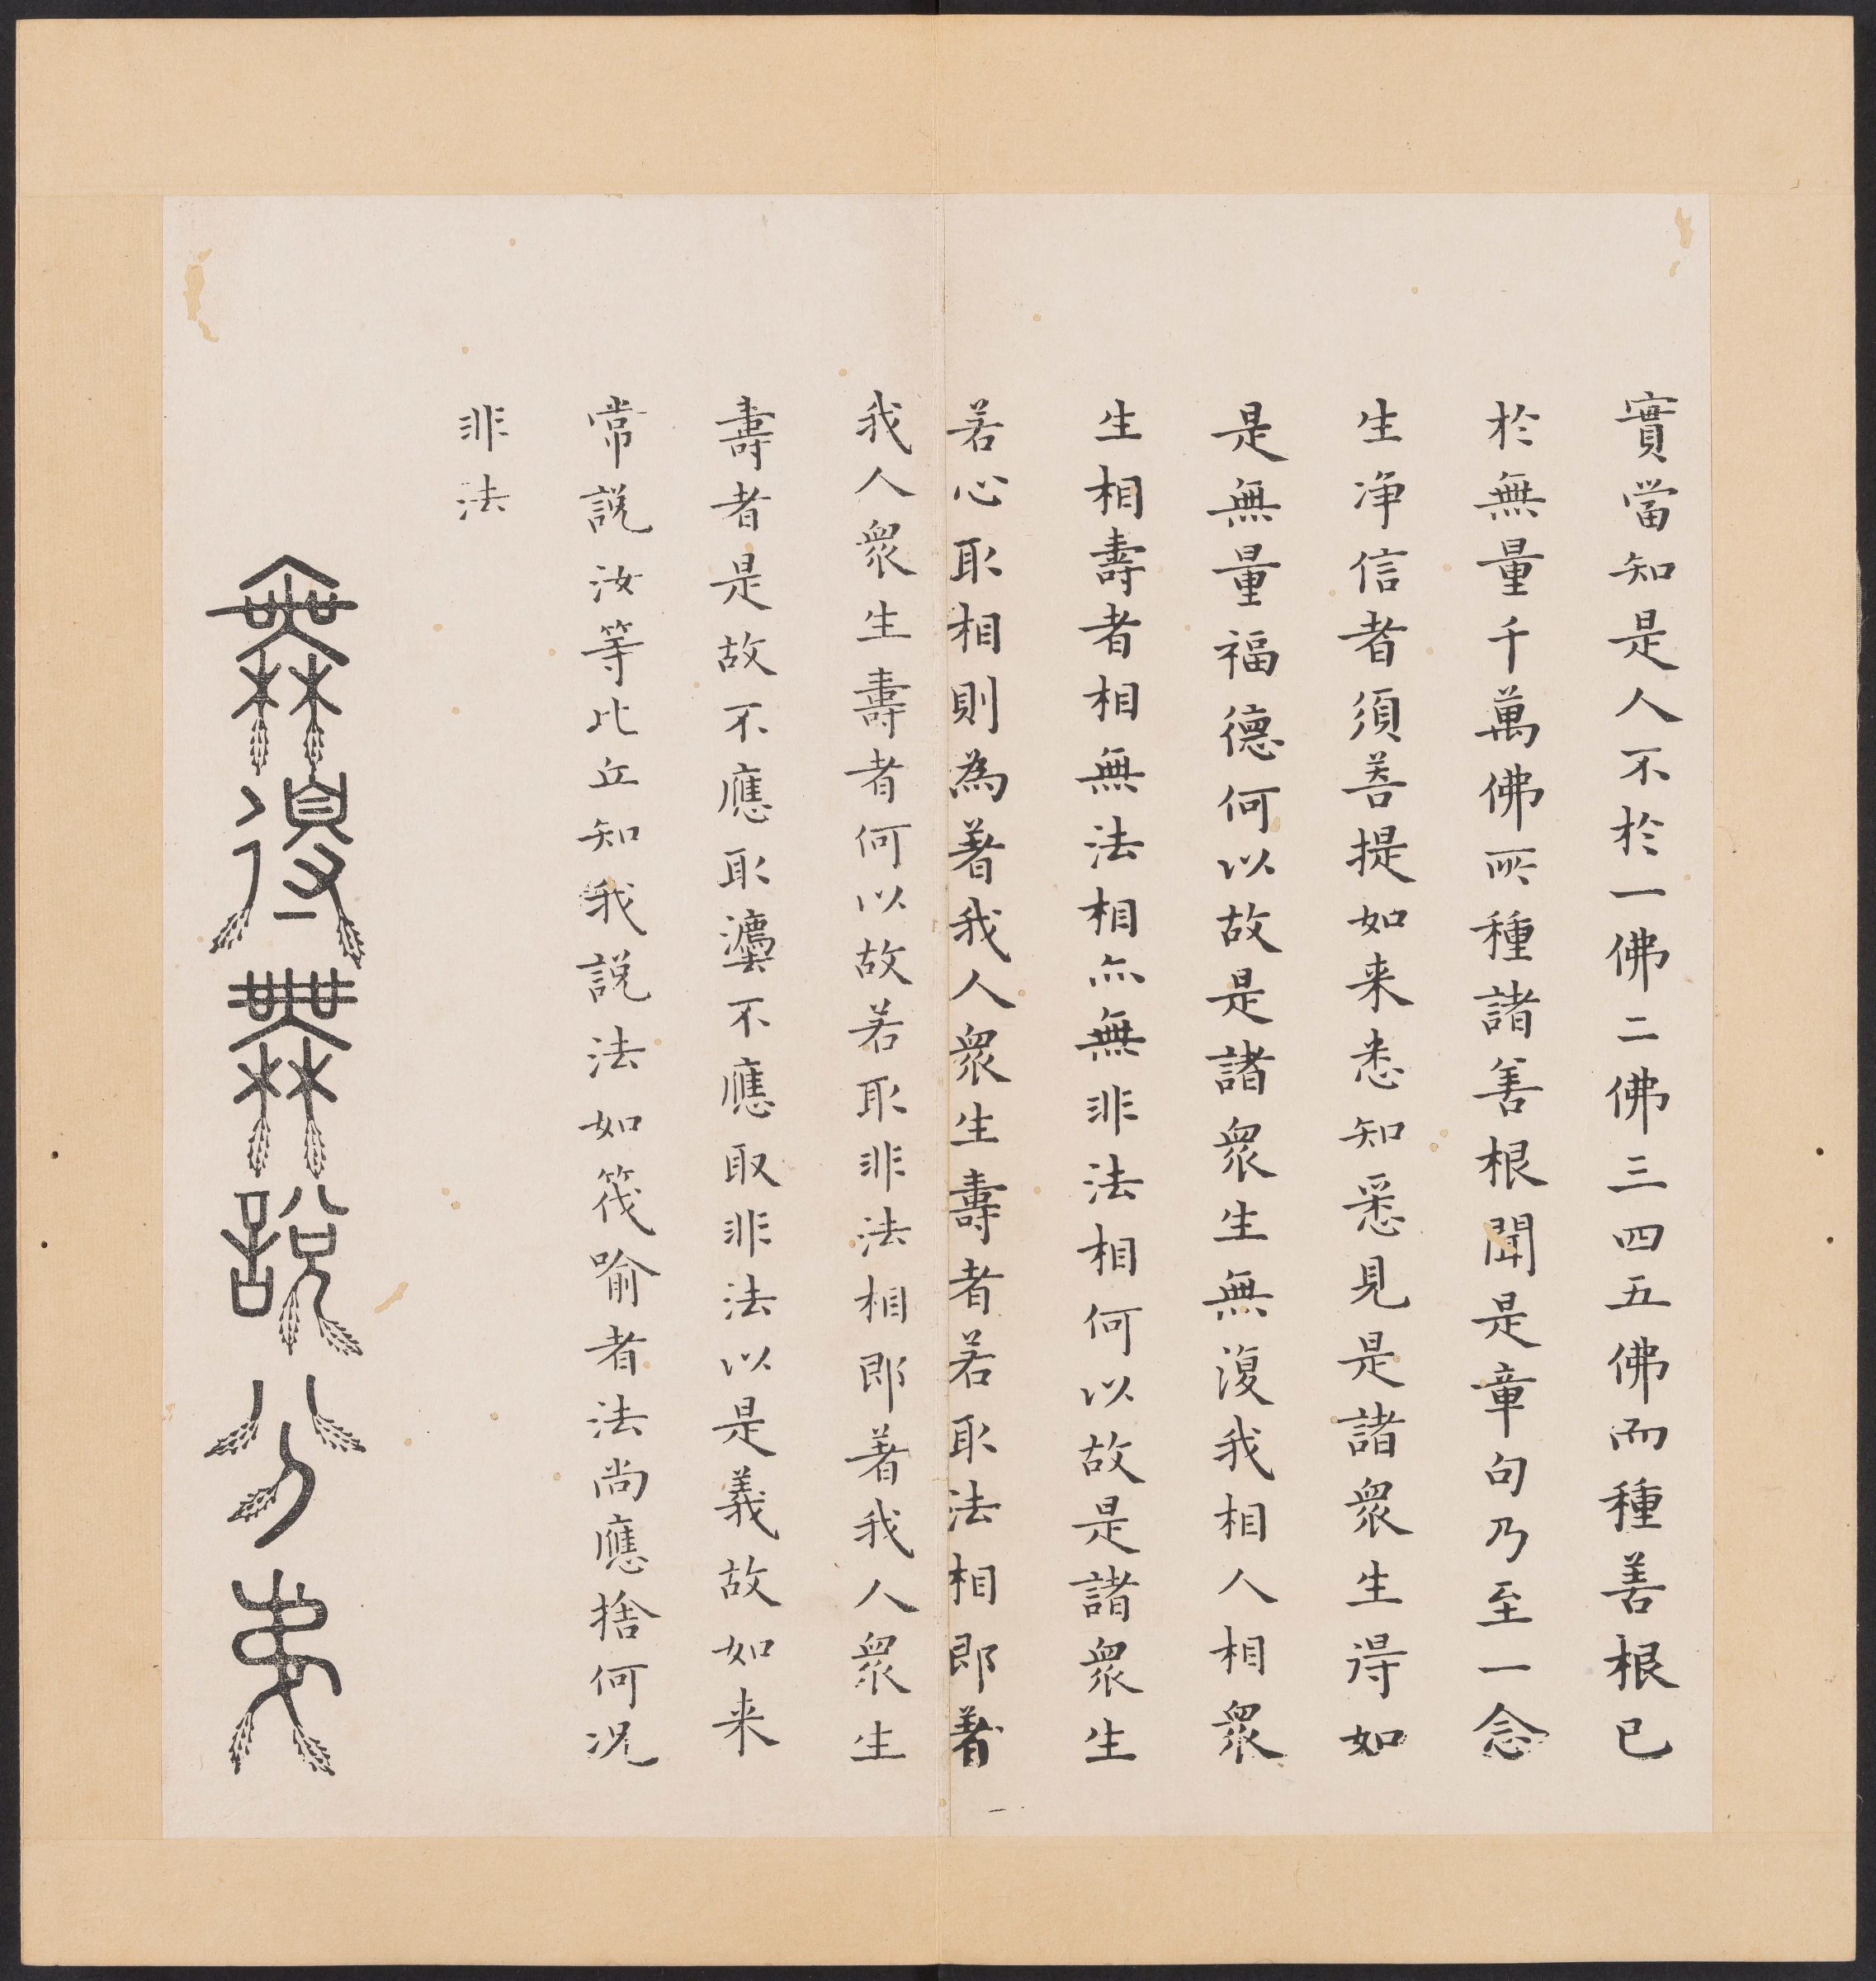 實當知是人不於一佛二佛三四五佛而種善根已
於無量千萬佛所種諸善根聞是章句乃至一念
生淨信者須菩提如来悉知悉見是諸衆生得如
是無量福德何以故是諸衆生無復我相人相衆
生相壽者相無法相亦無非法相何以故是諸衆生
若心取相則為著我人衆生壽者若取法相即著
我人衆生壽者何以故若取非法相即著我人衆生
壽者是故不應取灋不應取非法以是義故如来
常説汝等比丘知我説法如筏喻者法尚應捨何況
非法
無得無說分弟